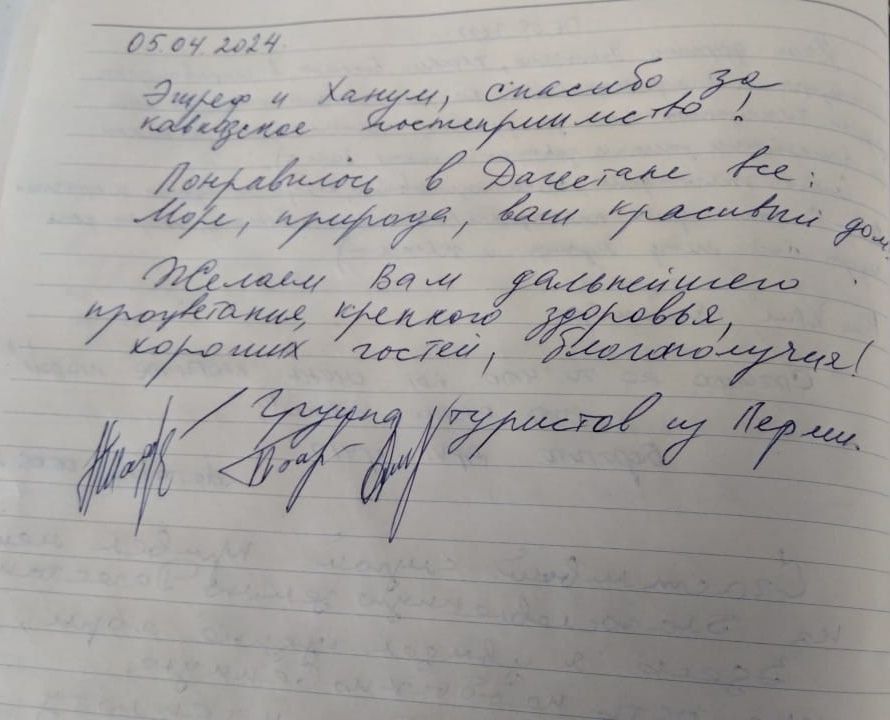 05.04.2024.
Эшреф и Ханум, спасибо за
кавказское гостеприимство!
Понравилось в Дагестане все:
Море, природа, ваш красивый дом.
Желаем Вам дальнейшего
процветания, крепкого здоровья,
хороших гостей, благополучия!
Группа туристов из Перми.